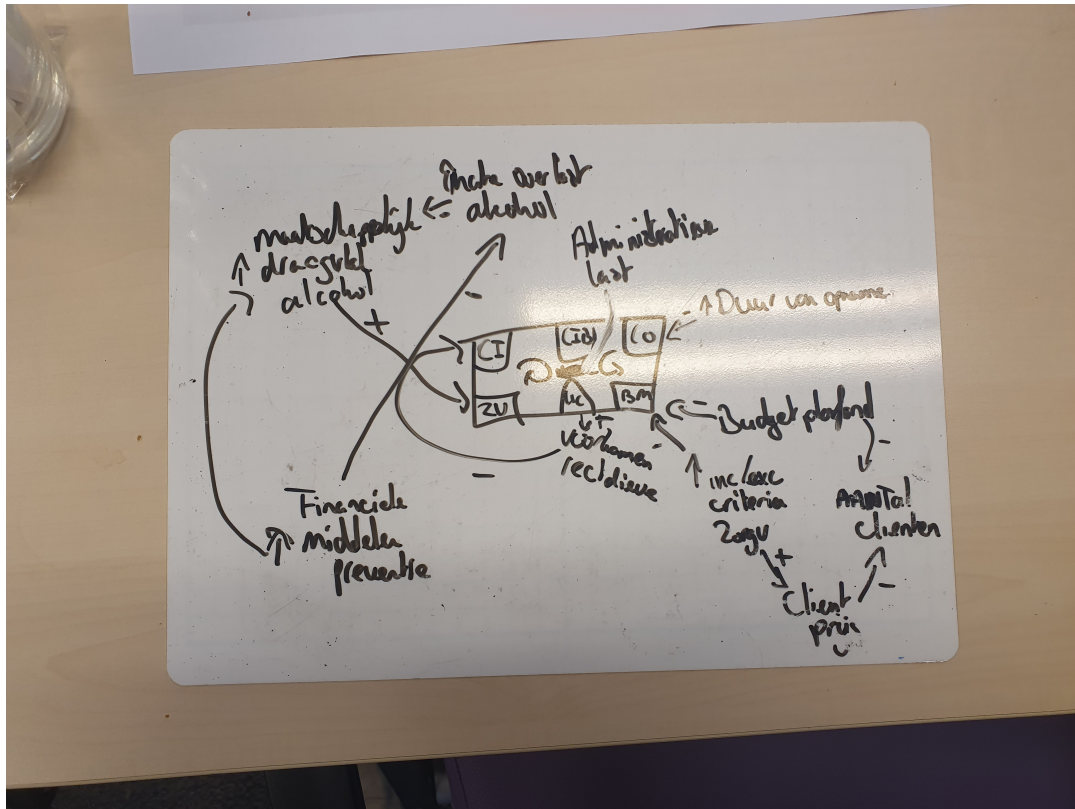 overlast
alcohol
maatschappelijk
draagvlak
alcohol
Administratieve
last
+
-
CI
CO
↑ Duur van opname
ZU
BM
- Budget plafond
voorkomen
recidieve
-
-
↑ inc/exc
criteria
Zorgv
+
AANTal
clienten
-
Client
prijs
Financiele
middelen
preventie